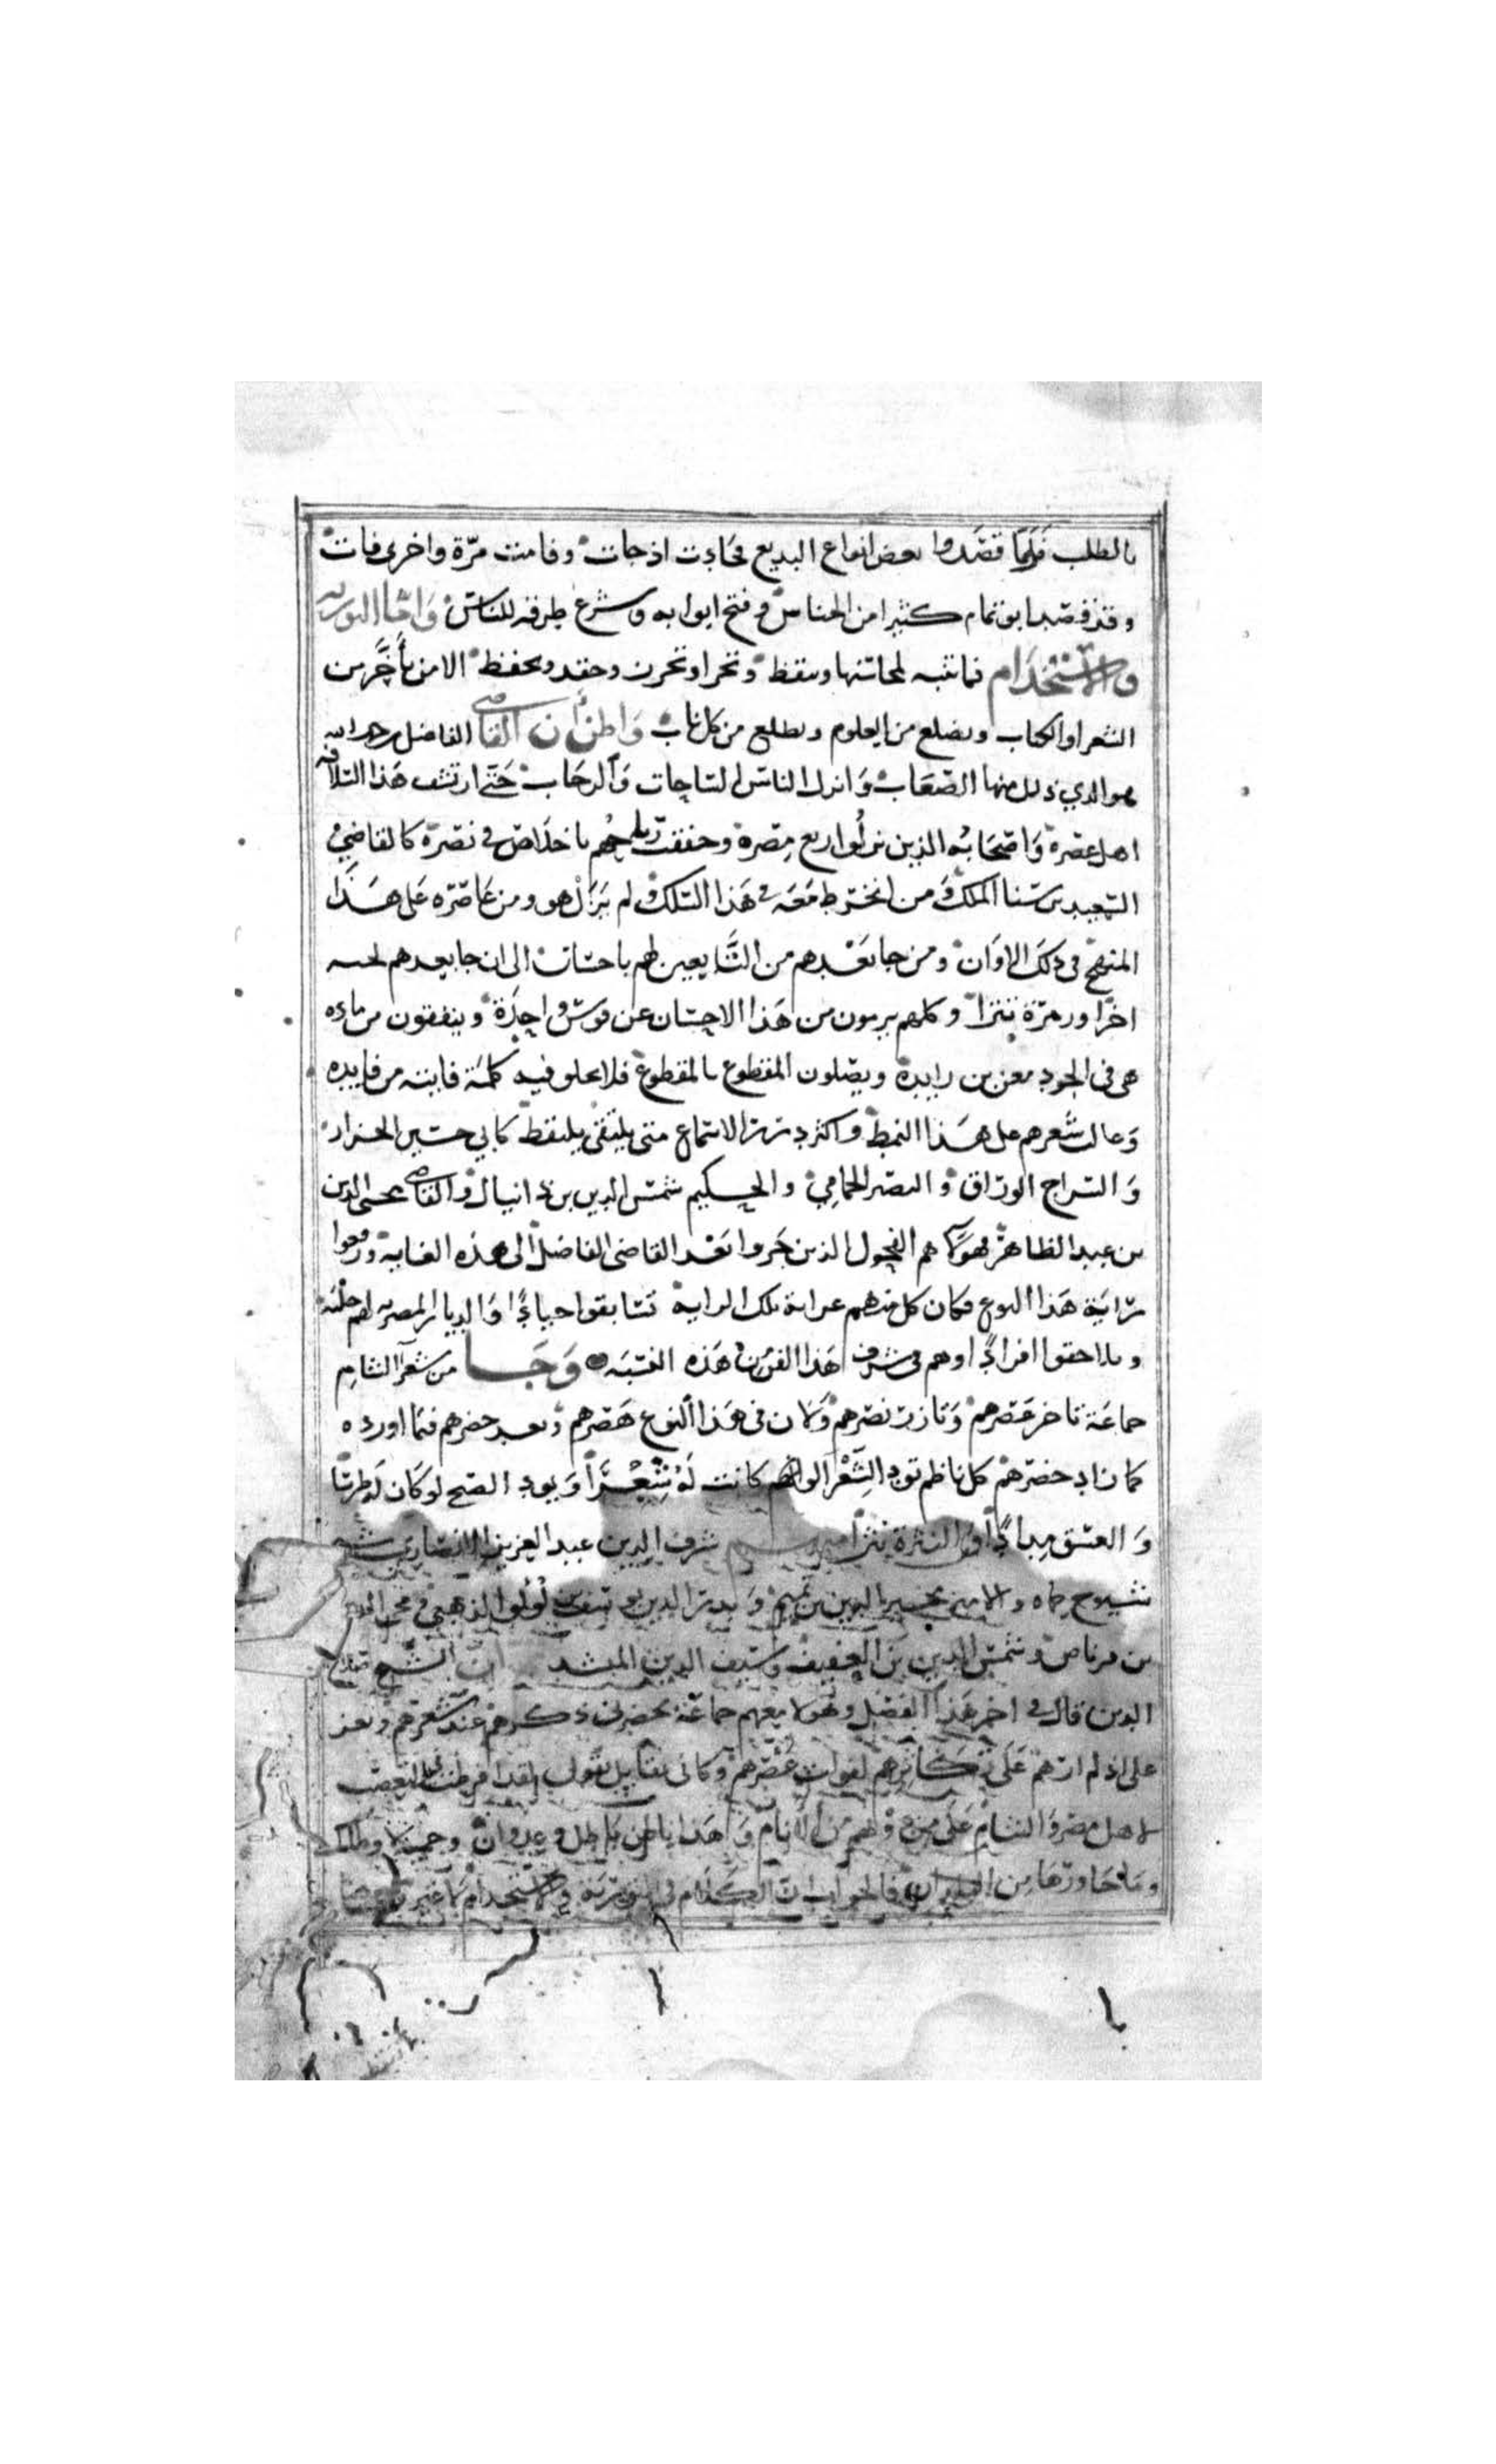 بالطلب فلما قصدوا بعض انواع البديع فجاءت اذ جات وفامنت مرة واخرى فات
وقد قصد ابو تمام كثيرا من الجناس وفتح ابوابه وشرع طرقه للناس واما التوريه
والاستخدام فما تنبه لمحاسنها وتيقظ وتحرا وتحرن وتحفظ الا من تأخر من
الشعرا والكتاب وتضلع من العلوم وتطلع من كل باب واظن أن القاضي الفاضل رحمه الله
هو الذي ذلل منها الصعاب وانزل الناس الساحات والرحاب حتى ارتشف هذا السلافه
اهل عصره واصحابه الذين نزلوا ربع مصره وخفقت رياحهم باخلاص في نصره كالقاضي
السعيد بن سنا الملك ومن انخرط معه في هذا السلك ولم يزل هو ومن عاصره على هذا
المنهج في ذلك الاوان ومن جا بعدهم من التابعين لهم باحسان الى ان جا بعدهم
اخرا وزمرة تترا وكلهم يرمون من هذا الاحسان عن قوس واحدة وينفقون من ماده
هي في الجود معن بن زايدة ويصلون المقطوع بالمقطوع فلا يخلو فيه كلمة فاينه من فايده
وغالب شعرهم على هذا النمط واكثر درر الاسماع متى يلتقى يلتقط كابي حسين الجزار
والسراج الوراق والنصير الحمامي والحكيم شمس الدين بن دانيال والقاضي محيي الدين
بن عبد الظاهر فهولآ هم الفحول الذين جروا بعد القاضي الفاضل الى هذه الغاية ورفعوا
راية هذا النوع فكان كل منهم عرابة تلك الراية تسابقوا جيادًا والديار المصريه لهم حلبه
وتلاحقوا افرادًا وهم في شرف هذا الفن هذه النسبه وجا من شعرآ الشام
جماعة تاخر عصرهم وتازر نصرهم وكان في هذا النوع هصرهم وبعد حضرهم فيما اورده
كان اذ حضرهم كل ناظم تود الشعرى لو انها كانت له شِعْرًا ويود الصبح لو كان له طرسًا
والغسق مدادًا والنثرة نثرا شرف الدين عبد العزيز الانصاري شيخ
شيوخ حماه والامير مجير الدين بن تميم وبدر الدين يوسف بن لؤلؤ الذهبي ومحي الدين
بن قرناص وشمس الدين بن العفيف وسيف الدين المشد ان الشيخ صلاح
الدين قال في اخر هذا الفصل وهولا معهم جماعة يحضرني ذكرهم عند شعرهم ويعز
على اذ لم ارهم على تكاثرهم لفوات عصرهم وكاني بقايل يقول لقد افرطت في التعصب
لاهل مصر والشام على من دونهم من الانام وهذا باطل وعدوان وحمية وطلك
وما جاورها من البلدان فالجواب ان الكلام في التورية والاستخدام لا غير